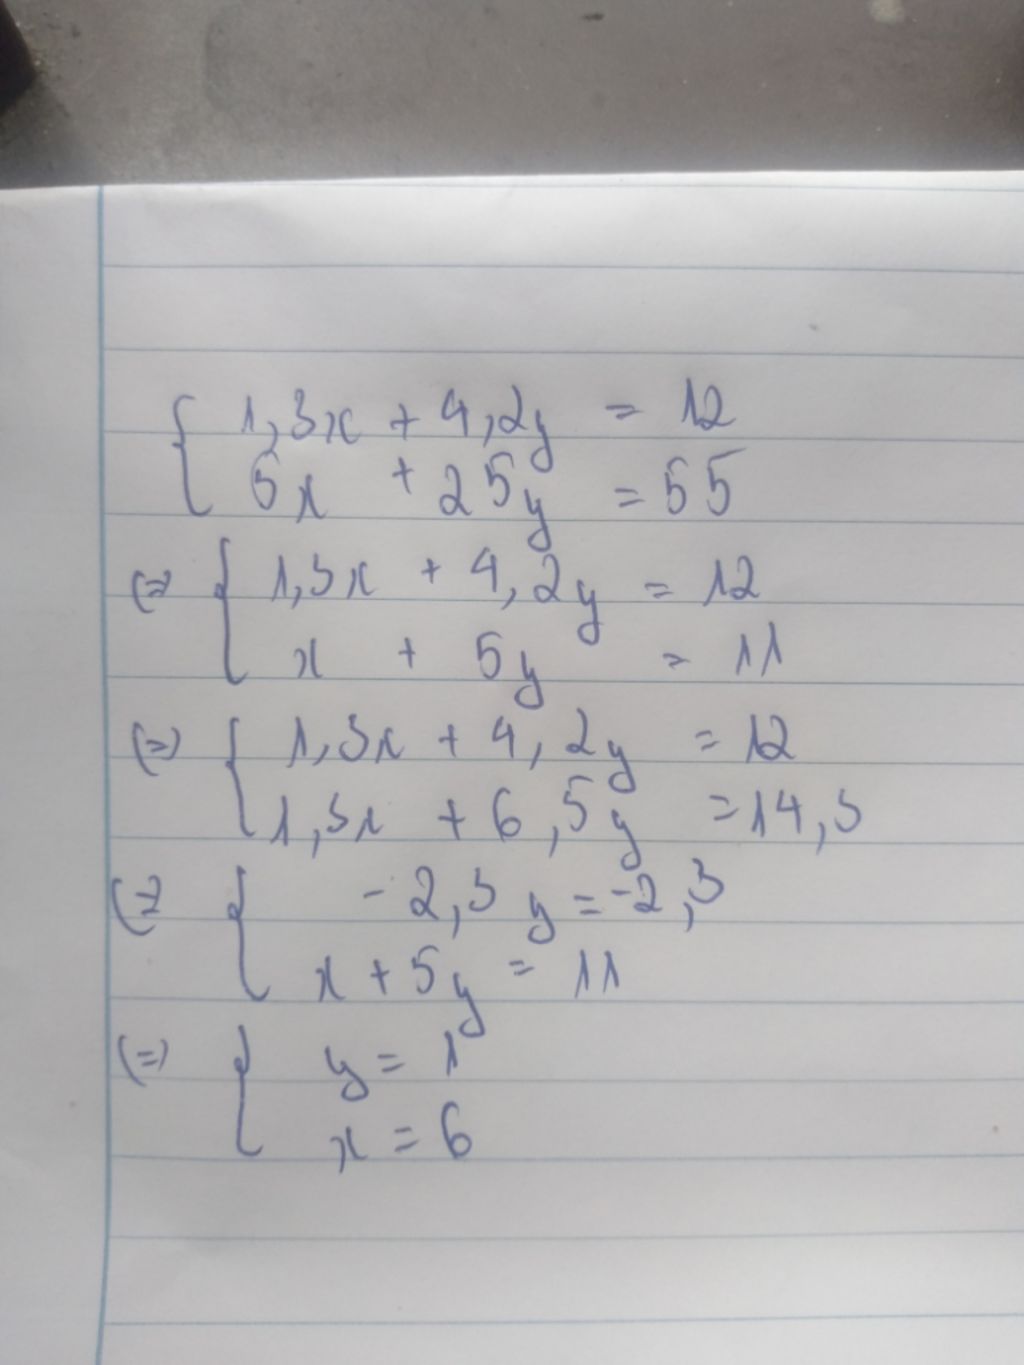 { 1,3x + 4,2y = 12
5x + 25y = 55
(=) { 1,3x + 4,2y = 12
x + 5y = 11
(=) { 1,3x + 4,2y = 12
1,3x + 6,5y = 14,3
(=) { -2,3y = -2,3
x + 5y = 11
(=) { y = 1
x = 6